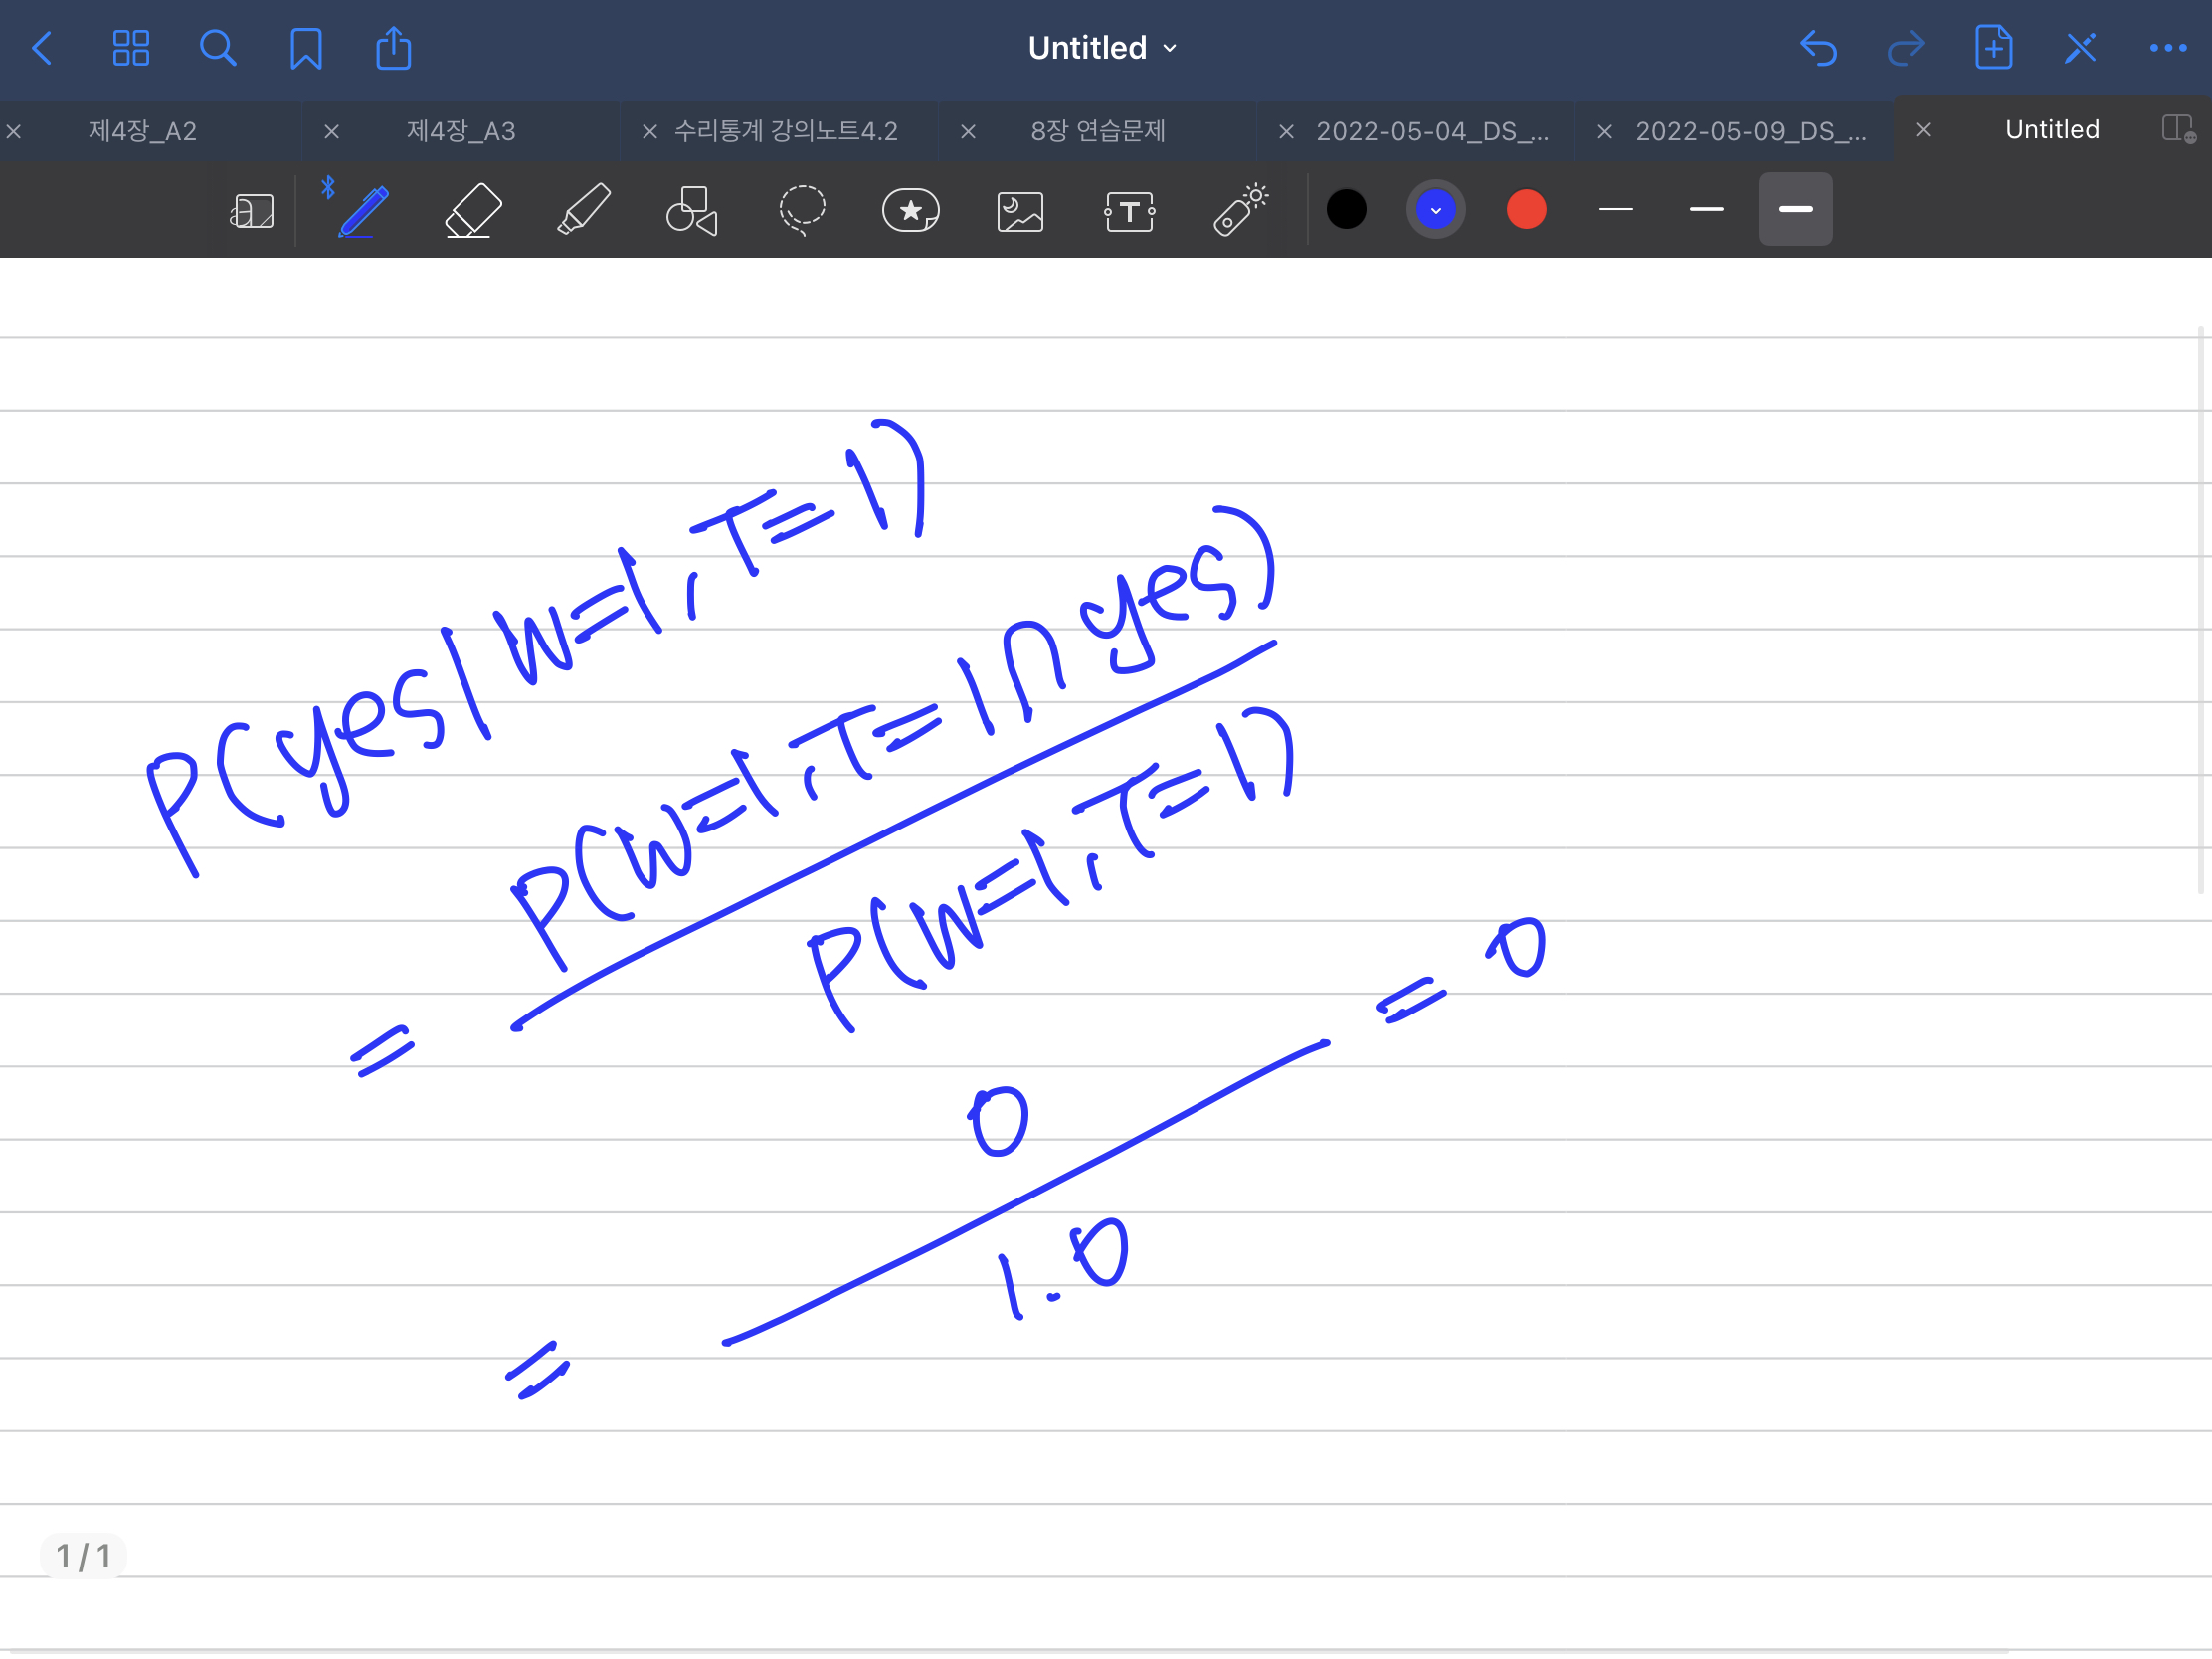 Untitled
제4장_A2
제4장_A3
수리통계 강의노트4.2
8장 연습문제
2022-05-04_DS_...
2022-05-09_DS_...
Untitled
P(yes|W=1,T=1)
= P(W=1,T=1∩yes)
P(W=1,T=1)
= 0
1.0
= 0
1 / 1